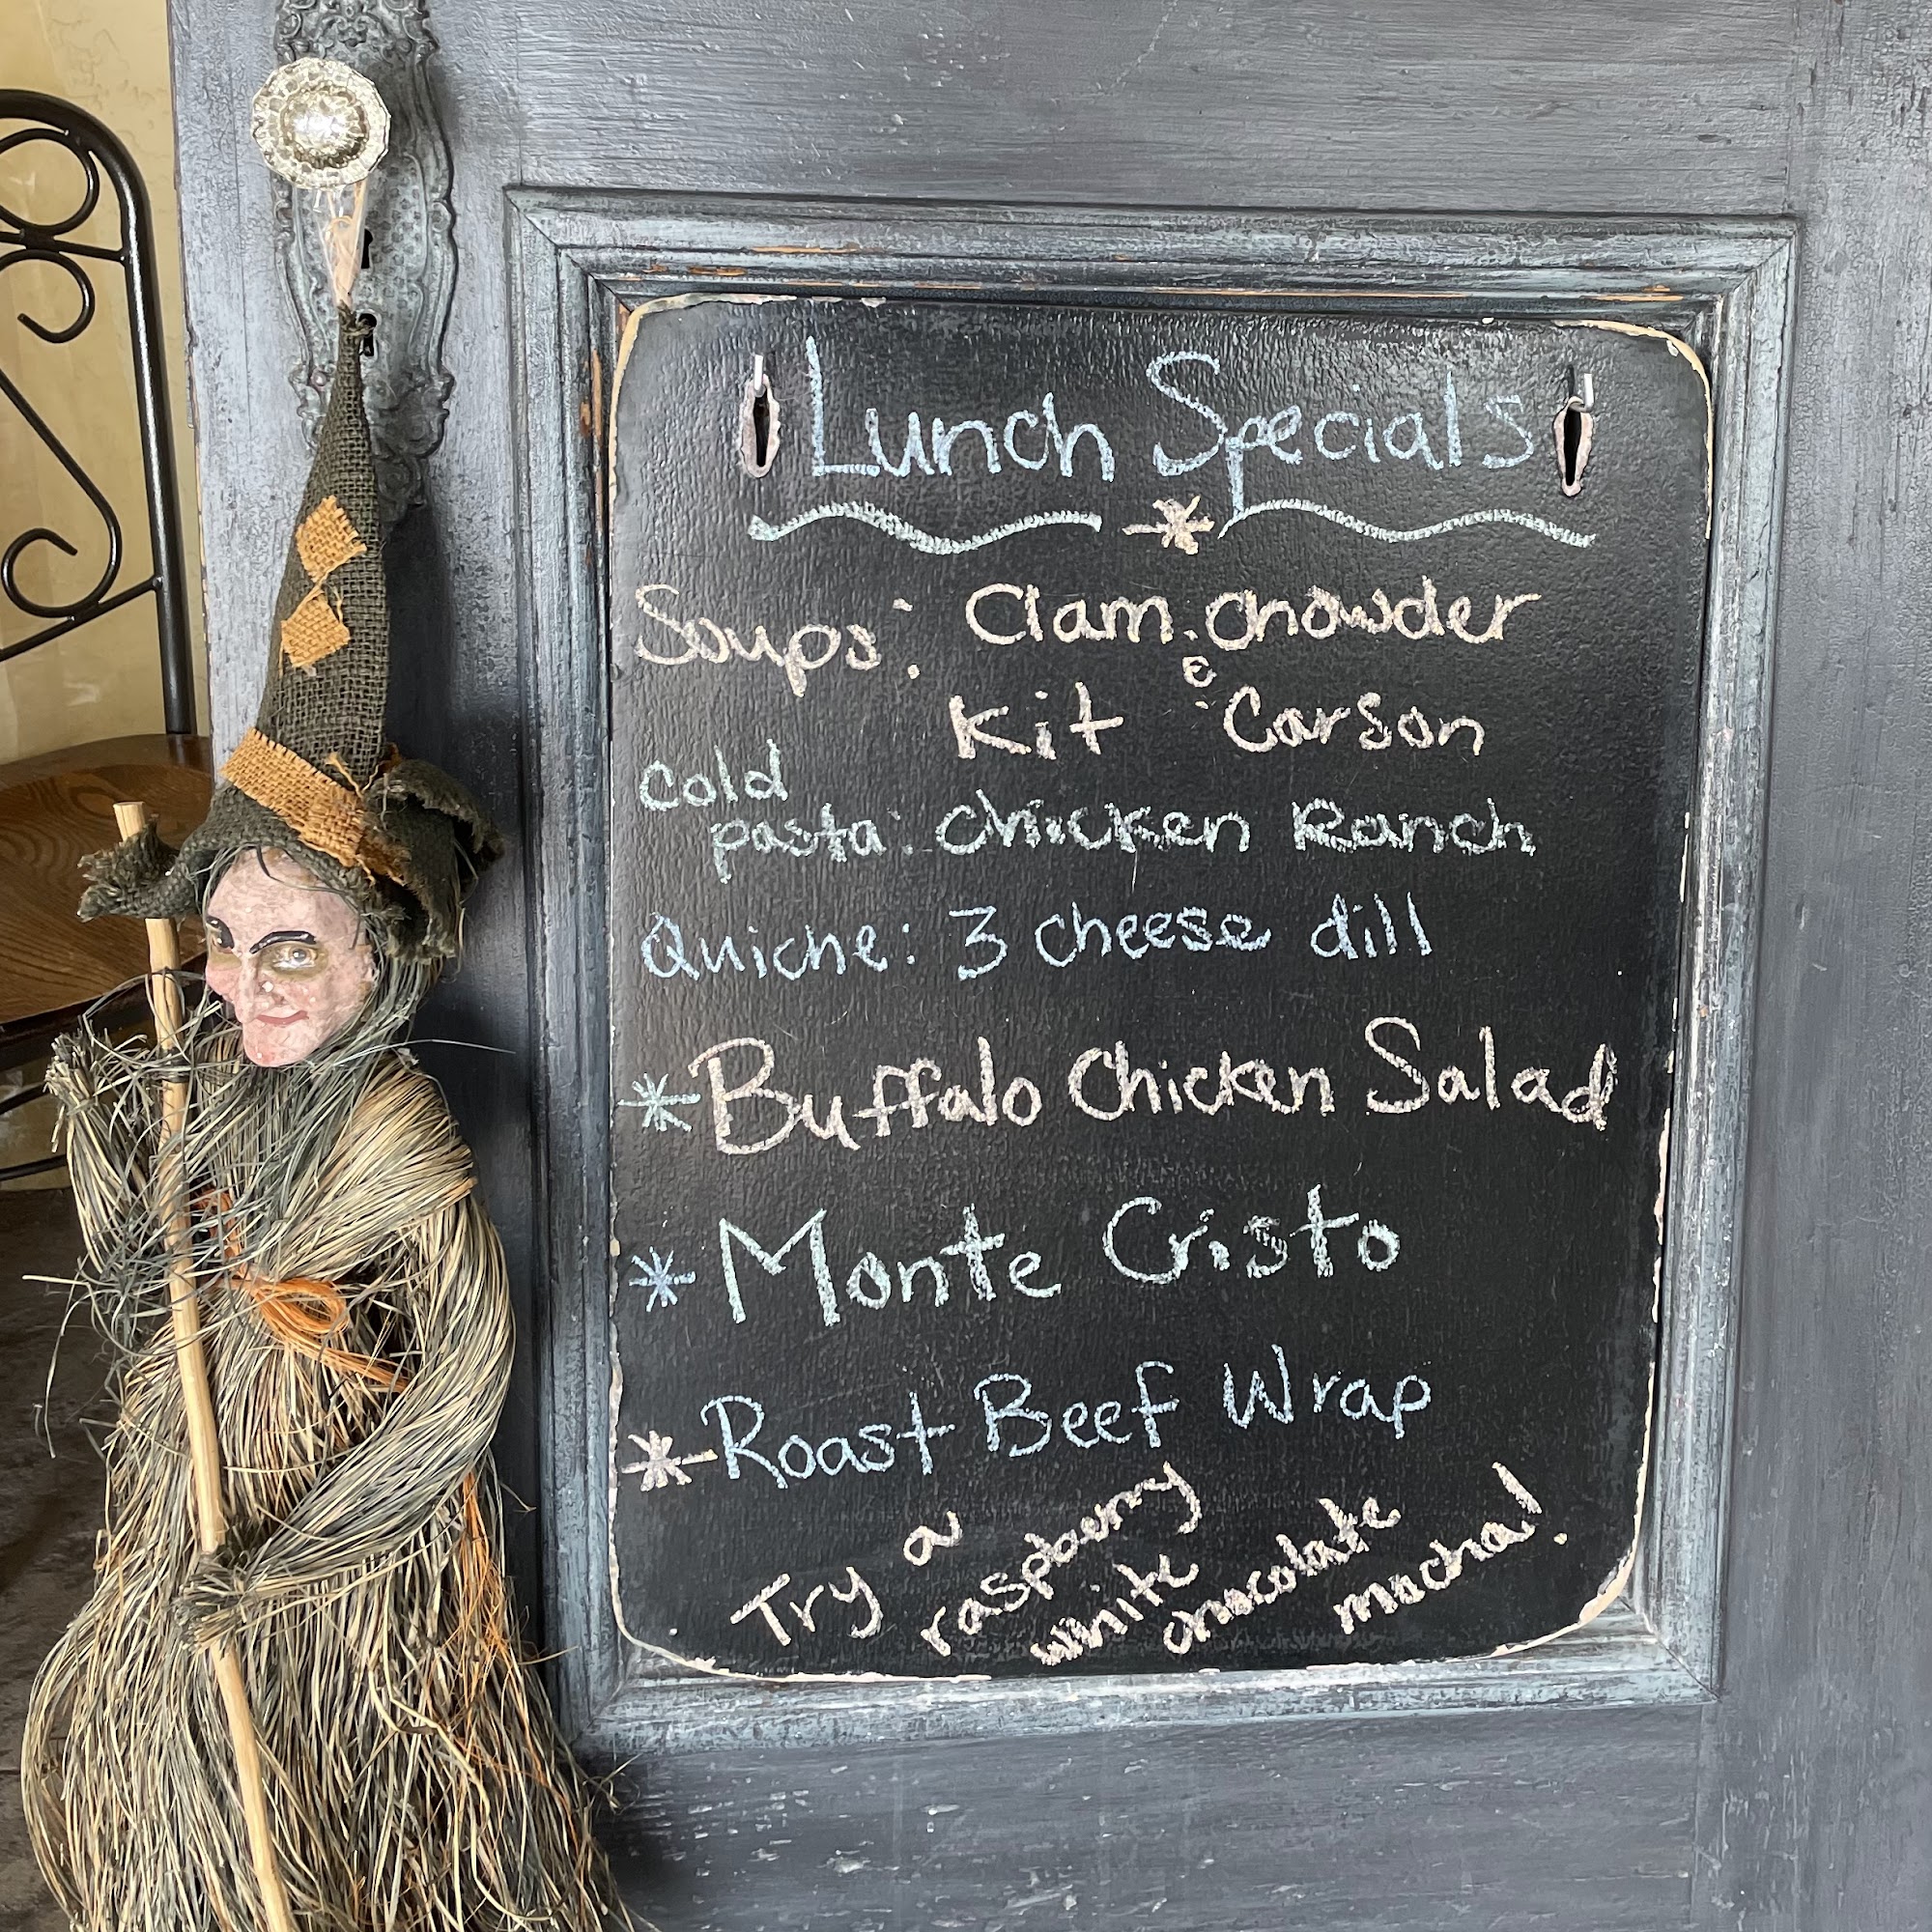 Lunch Specials
Soups: Clam chowder
&
Kit Carson
Cold
pasta: chicken Ranch
Quiche: 3 cheese dill
* Buffalo Chicken Salad
* Monte Cristo
* Roast Beef Wrap
Try a raspberry white chocolate mocha!